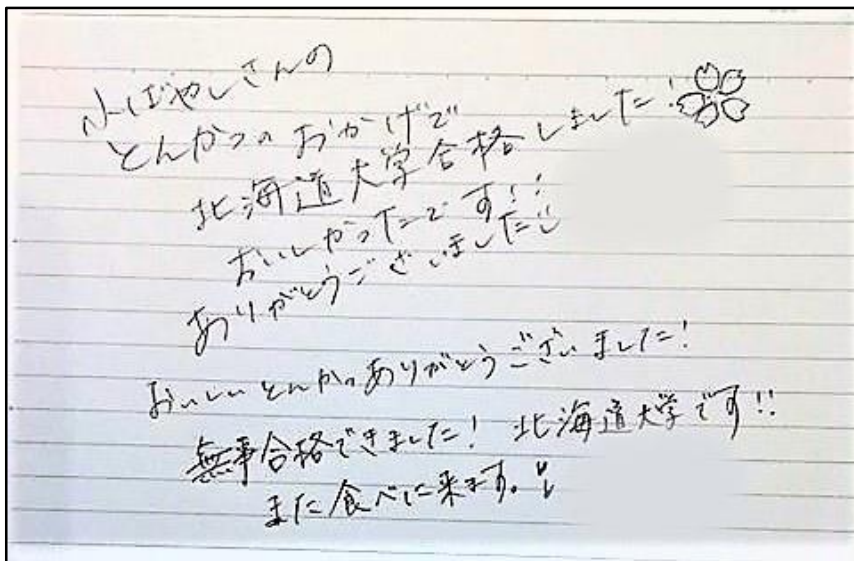 小ばやしさんの
とんかつのおかげで
北海道大学合格しました!
おいしかったです!!
ありがとうございました
おいしいとんかつありがとうございました!
無事合格できました! 北海道大学です!!
また食べに来ます。